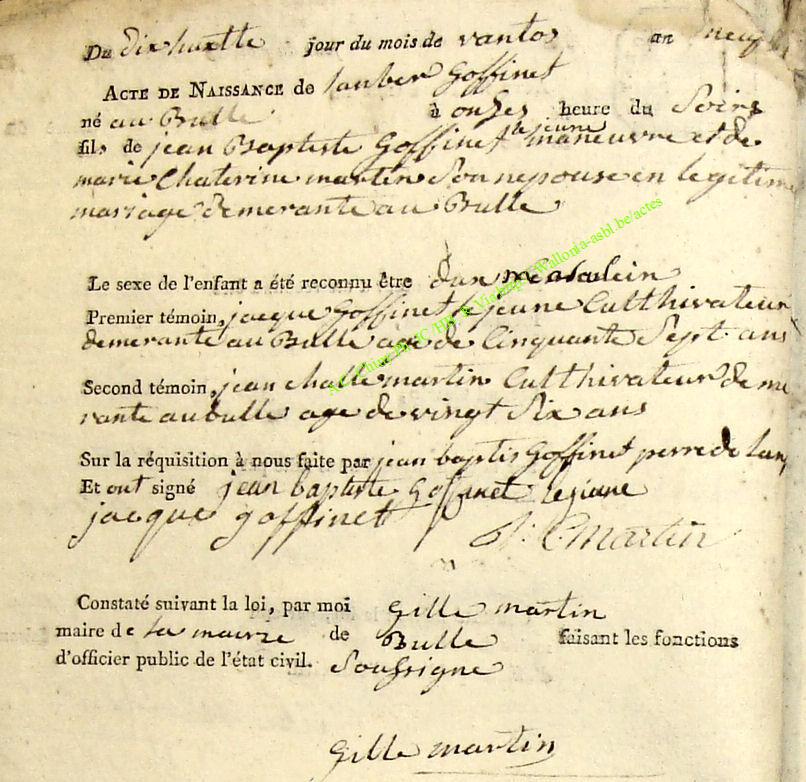 Du dix huitte jour du mois de vantos an neuf
ACTE DE NAISSANCE de lanber Goffinet
né au Bulle à onses heure du Soire
fils de jean Baptiste Goffinet le jeune maneuvre et de
marie Chaterine martin Son nepouse en legitime
mariage demerante au Bulle
Le sexe de l'enfant a été reconnu être dun masculein
Premier témoin, jacque Goffinet le jeune Cultthivateur
demerante au Bulle age de Cinquante Sept ans
Second témoin, jean challe martin Cultthivateur deme
rante au bulle age de vingt Six ans
Sur la réquisition à nous faite par jean baptis Goffinet perre de lanf
Et ont signé jean baptiste Goffinet lejeune
jacque goffinet J. C. Martin
Constaté suivant la loi, par moi Gille martin
maire de la mairie de Bulle faisant les fonctions
d'officier public de l'état civil. Soussigne
Gille martin
Wallonia-asbl.be/actes